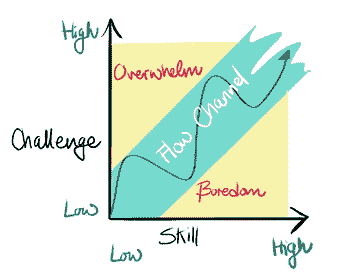 High
Overwhelm
Flow Channel
Challenge
Boredom
Low
Skill
Low
High